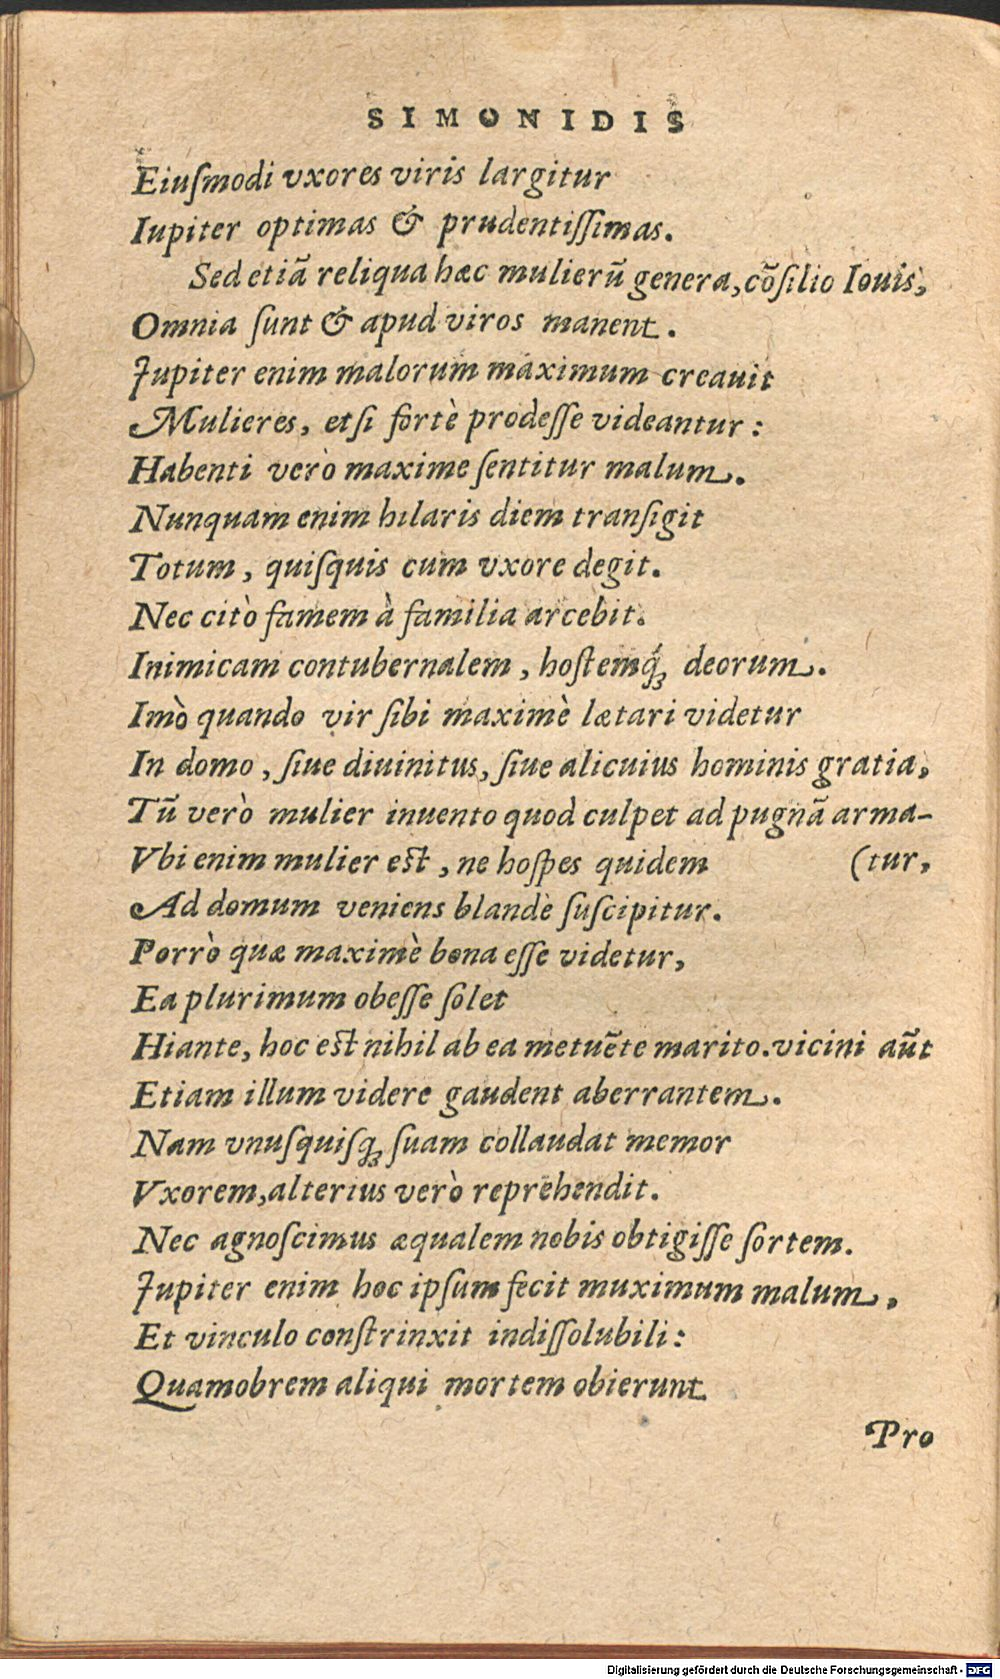 SIMONIDIS
Eiuſmodi vxores viris largitur
Iupiter optimas & prudentiſſimas.
Sed etiã reliqua hæc mulierũ genera, cõſilio Iouis,
Omnia ſunt & apud viros manent.
Jupiter enim malorum maximum creauit
Mulieres, etſi fortè prodeſſe videantur:
Habenti verò maxime ſentitur malum.
Nunquam enim hılaris diem tranſigit
Totum, quiſquis cum vxore degit.
Nec citò famem à familia arcebit.
Inimicam contubernalem, hoſtemq́ꝫ deorum.
Imò quando vir ſibi maximè lætari videtur
In domo, ſiue diuinitus, ſiue alicuius hominis gratia,
Tũ verò mulier inuento quod culpet ad pugnã arma-
Vbi enim mulier eſt, ne hoſpes quidem (tur,
Ad domum veniens blandè ſuſcipitur.
Porrò quæ maximè bona eſſe videtur,
Ea plurimum obeſſe ſolet
Hiante, hoc eſt nihil ab ea metuẽte marito. vicini aũt
Etiam illum videre gaudent aberrantem.
Nam vnuſquiſqꝫ ſuam collaudat memor
Vxorem, alterius verò reprehendit.
Nec agnoſcimus æqualem nobis obtigiſſe ſortem.
Jupiter enim hoc ipſum fecit muximum malum,
Et vinculo conſtrinxit indiſſolubili:
Quamobrem aliqui mortem obierunt
Pro
Digitalisierung gefördert durch die Deutsche Forschungsgemeinschaft - DFG